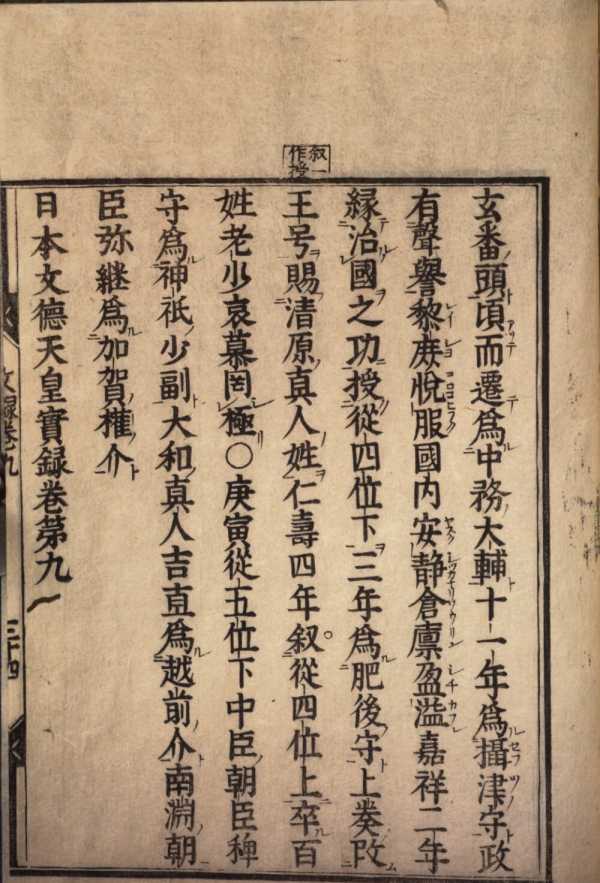 叙一
作授
玄番頭頃而遷爲中務大輔十一年爲攝津守政
有聲譽黎庻悦服國内安静倉廪盈溢嘉祥二年
縁治國之功授從四位下三年爲肥後守上奏改
王号賜清原真人姓仁壽四年叙從四位上卒百
姓老少哀慕罔極〇庚寅從五位下中臣朝臣稗
守爲神祇少副大和真人吉直爲越前介南淵朝
臣弥継爲加賀權介
日本文德天皇實録卷第九
文録卷九
三十四